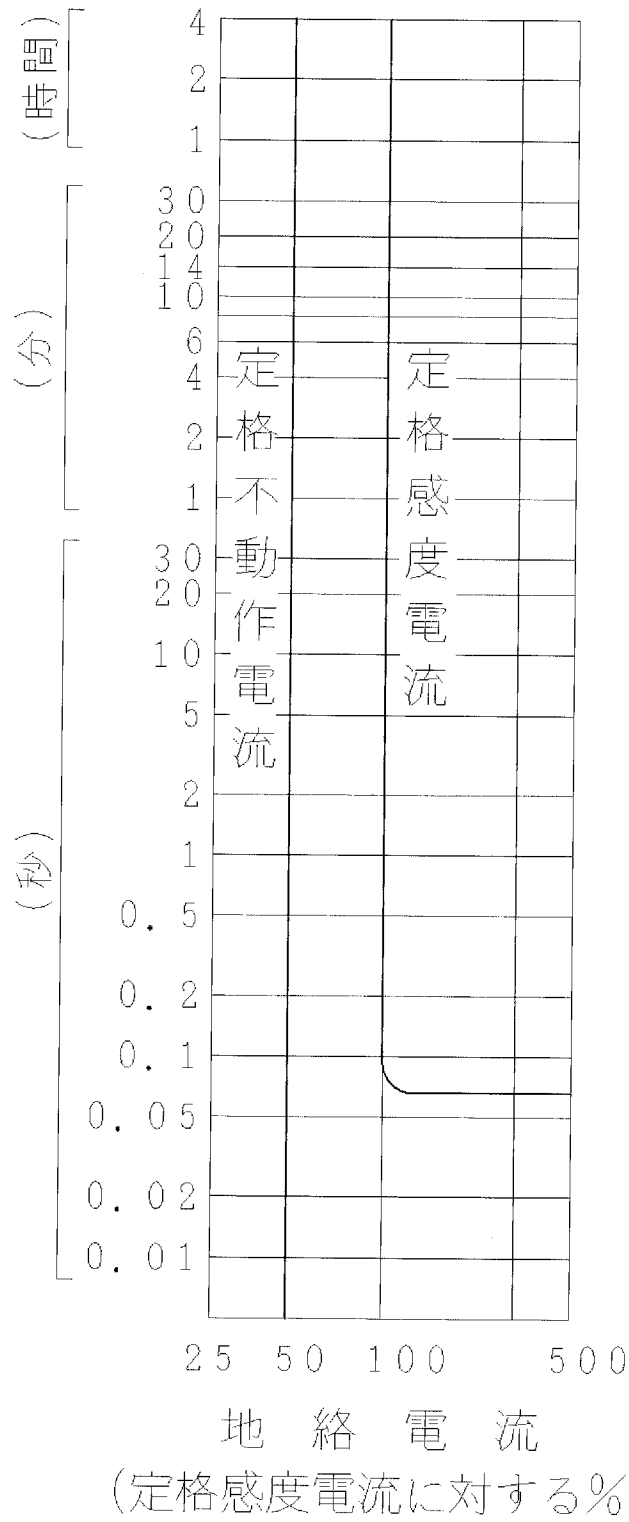 (時間)
4
2
1
(分)
30
20
14
10
6
4
2
1
(秒)
30
20
10
5
2
1
0.5
0.2
0.1
0.05
0.02
0.01
定格不動作電流
定格感度電流
25 50 100 500
地絡電流
(定格感度電流に対する%